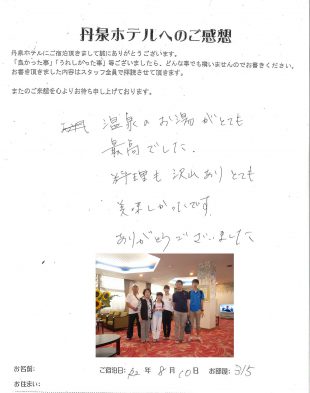 丹泉ホテルへのご感想
丹泉ホテルにご宿泊頂きまして誠にありがとうございます。
「良かった事」「うれしかった事」等ございましたら、どんな事でも構いませんのでお書きください。
お書き頂きました内容はスタッフ全員で拝読させて頂きます。
またのご来館を心よりお待ち申し上げております。
温泉のお湯がとても
最高でした。
料理も沢山ありとても
美味しかったです。
ありがとうございました
お名前: ご宿泊日: R2 年 8 月 10 日 お部屋: 315
お住まい: